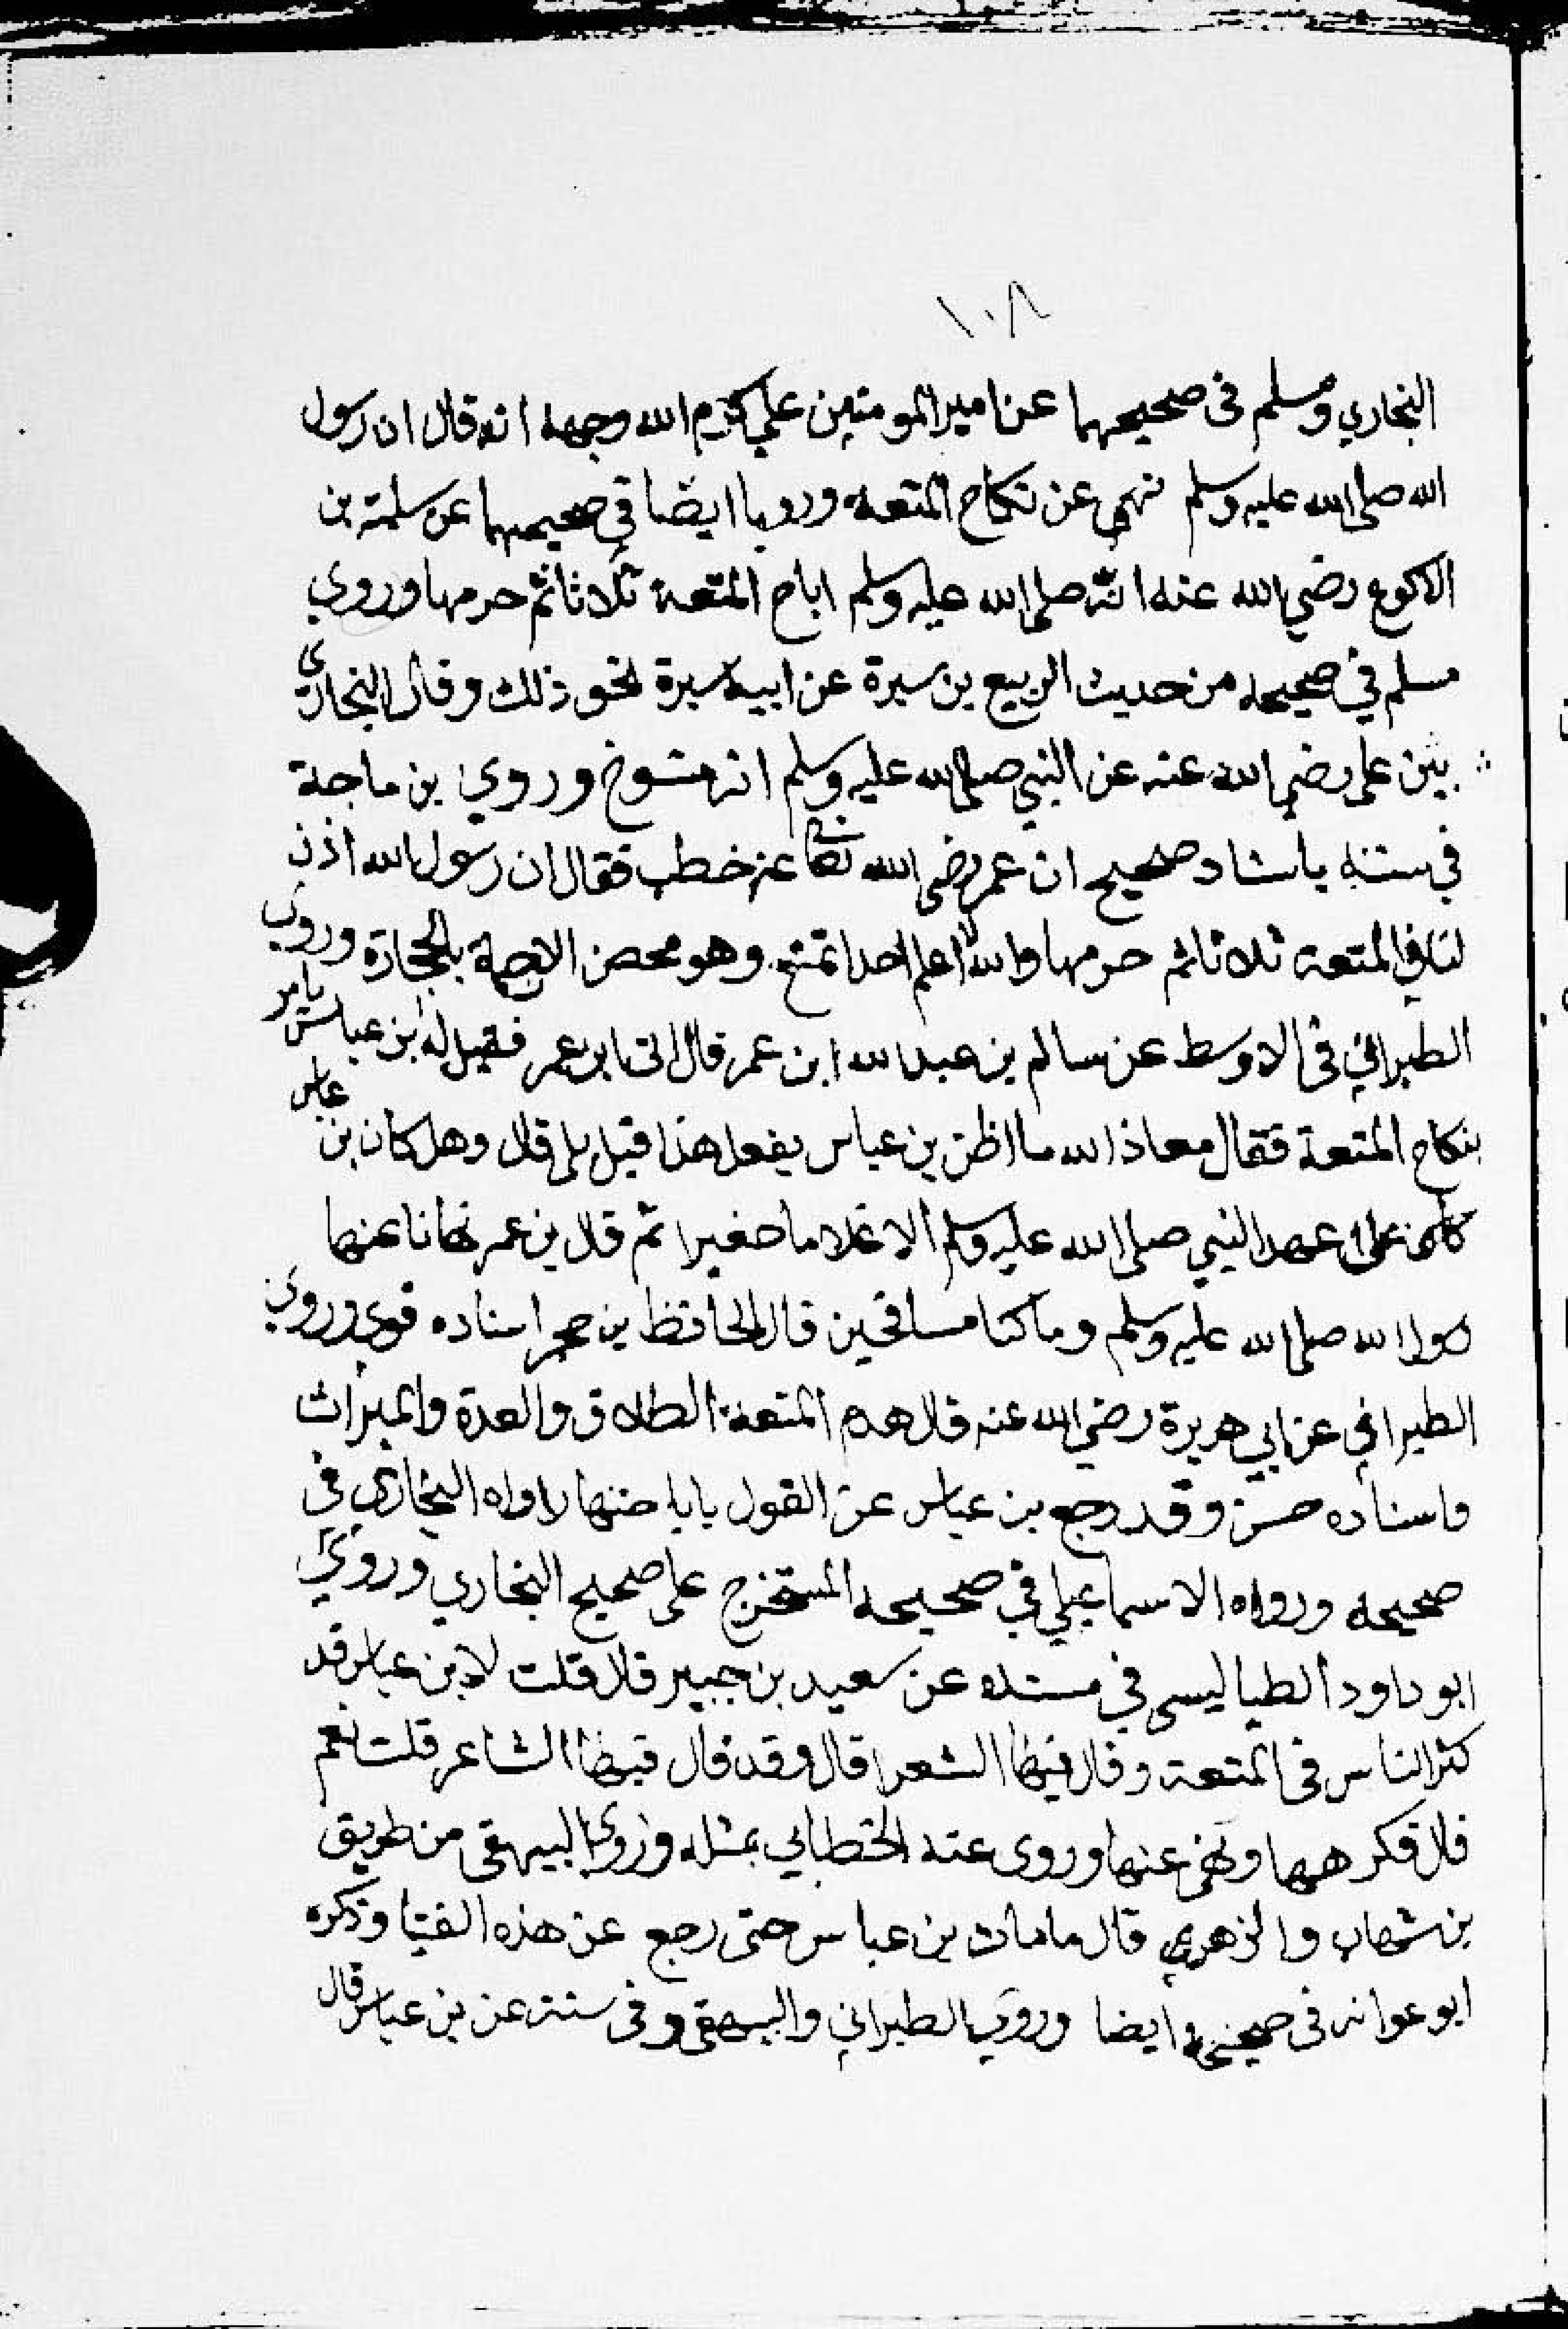 ١٠٨
البخاري ومسلم في صحيحهما عن امير المومنين علي كرم الله وجهه انه قال ان رسول
الله صلى الله عليه وسلم نهى عن نكاح المتعه ورويا ايضا في صحيحهما عن سلمة بن
الاكوع رضي الله عنه انه صلى الله عليه وسلم اباح المتعة ثلاثا ثم حرمها وروي
مسلم في صحيحه من حديث الربيع بن سبرة عن ابيه سبرة نحو ذلك وقال البخاري
بين علي رضي الله عنه عن النبي صلى الله عليه وسلم انه منسوخ وروي بن ماجة
في سننه باسناد صحيح ان عمر رضي الله تعالى عنه خطب فقال ان رسول الله اذن
لنا في المتعة ثلاثا ثم حرمها والله لا اعلم احدا تمتع وهو محصن الا رجمة بالحجارة وروي
الطبراني في الاوسط عن سالم بن عبد الله ابن عمر قال اتى ابن عمر فقيل له ابن عباس يامر
بنكاح المتعة فقال معاذ الله ما اظن بن عباس يفعل هذا قيل بلى قال وهل كان بن عباس
على عهد النبي صلى الله عليه وسلم الا غلاما صغيرا ثم قال بن عمر نهانا عنها
رسول الله صلى الله عليه وسلم وما كنا مسافحين قال الحافظ بن حجر اسناده قوي وروي
الطبراني عن ابي هريرة رضي الله عنه قال هدم المتعة الطلاق والعدة والميراث
واسناده حسن وقد رجع بن عباس عن القول باباحتها رواه البخاري في
صحيحه ورواه الاسماعيلي في صحيحه المستخرج على صحيح البخاري وروي
ابو داود الطيالسي في مسنده عن سعيد بن جبير قال قلت لابن عباس قد
كثر الناس في المتعة وقال فيها الشعرا قال وقد قال فيها الشاعر قلت نعم
قال فكرهها ونهى عنها وروى عنه الخطابي بمثله وروى البيهقي من طريق
بن شهاب والزهري قال ما مات بن عباس حتى رجع عن هذه الفتيا وذكره
ابو عوانه في صحيحه ايضا وروي الطبراني والبيهقي وفي سننه عن بن عباس قال